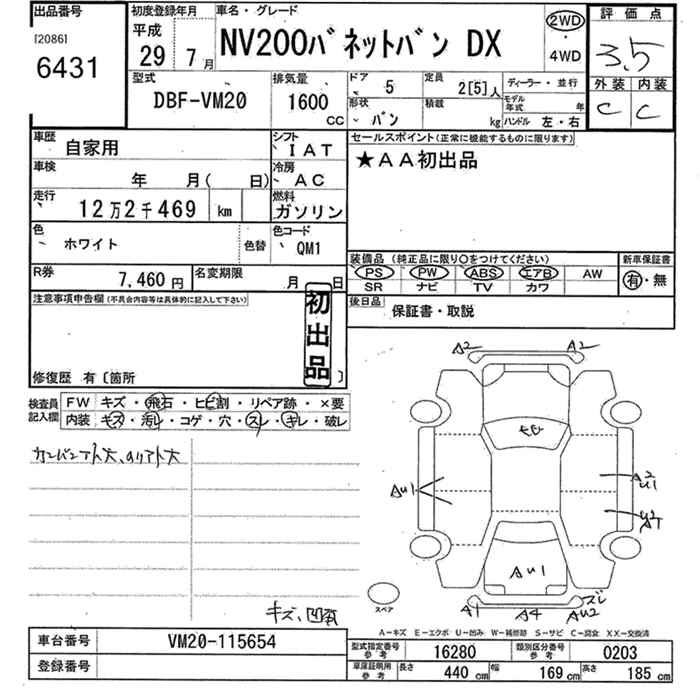 出品番号
[2086]
6431
初度登録年月
平成
29 7月
車名・グレード
NV200バネットバン DX
2WD
・
4WD
評価点
3.5
外装 内装
C C
型式
DBF-VM20
排気量
1600
CC
ドア
5
形状
バン
定員
2[5]人
積載
kg
ディーラー・並行
モデル年式 年
ハンドル 左・右
車歴
自家用
シフト
IAT
車検
年 月( 日)
冷房
AC
走行
12万2千469 km
燃料
ガソリン
色
ホワイト
色替
色コード
QM1
R券
7,460円
名変期限
月 日
セールスポイント(正常に機能するものに限ります)
★AA初出品
装備品(純正品に限り○をつけてください)
PS PW ABS エアB AW
SR ナビ TV カワ
新車保証書
有・無
後日品
保証書・取説
注意事項申告欄(不具合内容等は具体的に記入して下さい)
初出品
修復歴 有〔箇所 〕
検査員記入欄
FW キズ・飛石・ヒビ割・リペア跡・×要
内装 キズ・汚レ・コゲ・穴・スレ・キレ・破レ
キズ、凹有
A2 A2
A2
U1
AU1
AU1
A1 A4 AU2
ズレ
スペア
A-キズ E-エクボ U-凹み W-補修跡 S-サビ C-腐食 XX-交換済
車台番号
VM20-115654
登録番号
型式指定番号参考
16280
類別区分番号参考
0203
車庫証明用参考
長さ 440 cm 幅 169 cm 高さ 185 cm